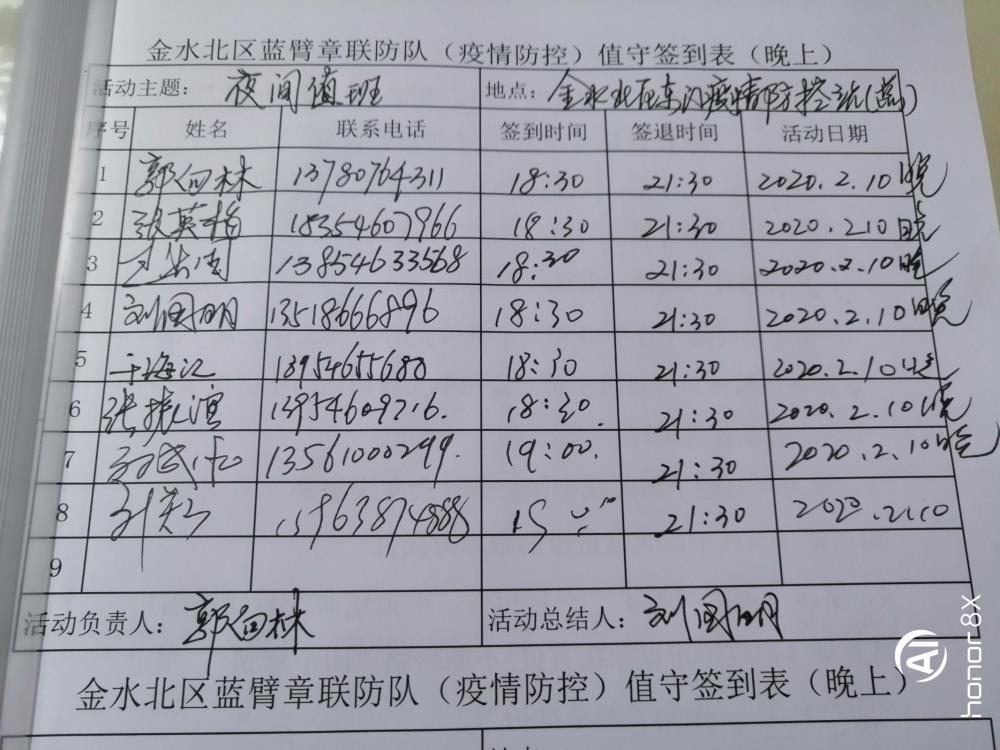 金水北区蓝臂章联防队（疫情防控）值守签到表（晚上）
活动主题： 夜间值班 地点： 金水北区东门疫情防控站
序号 姓名 联系电话 签到时间 签退时间 活动日期
1 郭向林 13780764311 18:30 21:30 2020.2.10晚
2 张英梅 18354607966 18:30 21:30 2020.2.10晚
3 13854633568 18:30 21:30 2020.2.10晚
4 刘国明 13518666896 18:30 21:30 2020.2.10晚
5 于海江 13954655688 18:30 21:30 2020.2.10晚
6 张振滨 13954609216. 18:30. 21:30 2020.2.10晚
7 13561000299. 19:00. 21:30 2020.2.10晚
8 21:30 2020.2.10
9
活动负责人： 郭向林 活动总结人： 刘国明
金水北区蓝臂章联防队（疫情防控）值守签到表（晚上）
AI honor 8X